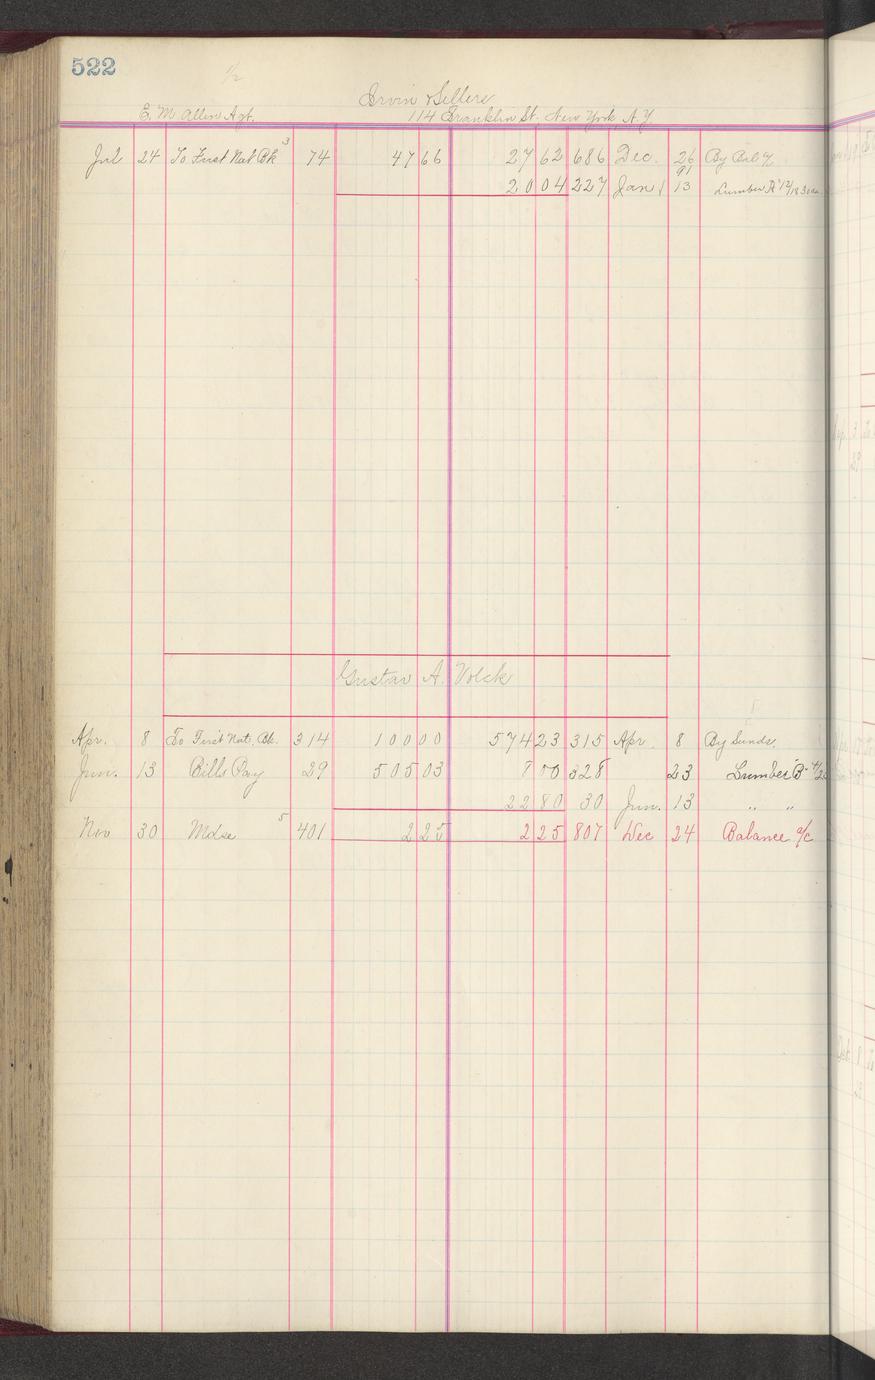 522
1/2
Irvin & Sellers
E. M. Allen Agt. 114 Franklin St. New York, N.Y.
Jul 24 To First Nat Bk 3 74 47 66 27 62 686 Dec. 26 By Bal
20 04 227 Jan 91 13 Lumber
Gustav A. Volck
Apr. 8 To First Nat. Bk. 314 100 00 574 23 315 Apr. 8 By Sunds.
Jun. 13 Bills Pay 29 505 03 8 00 328 23 Lumber "B"
22 80 30 Jun. 13 " "
Nov 30 Mdse 5 401 2 25 2 25 807 Dec 24 Balance a/c